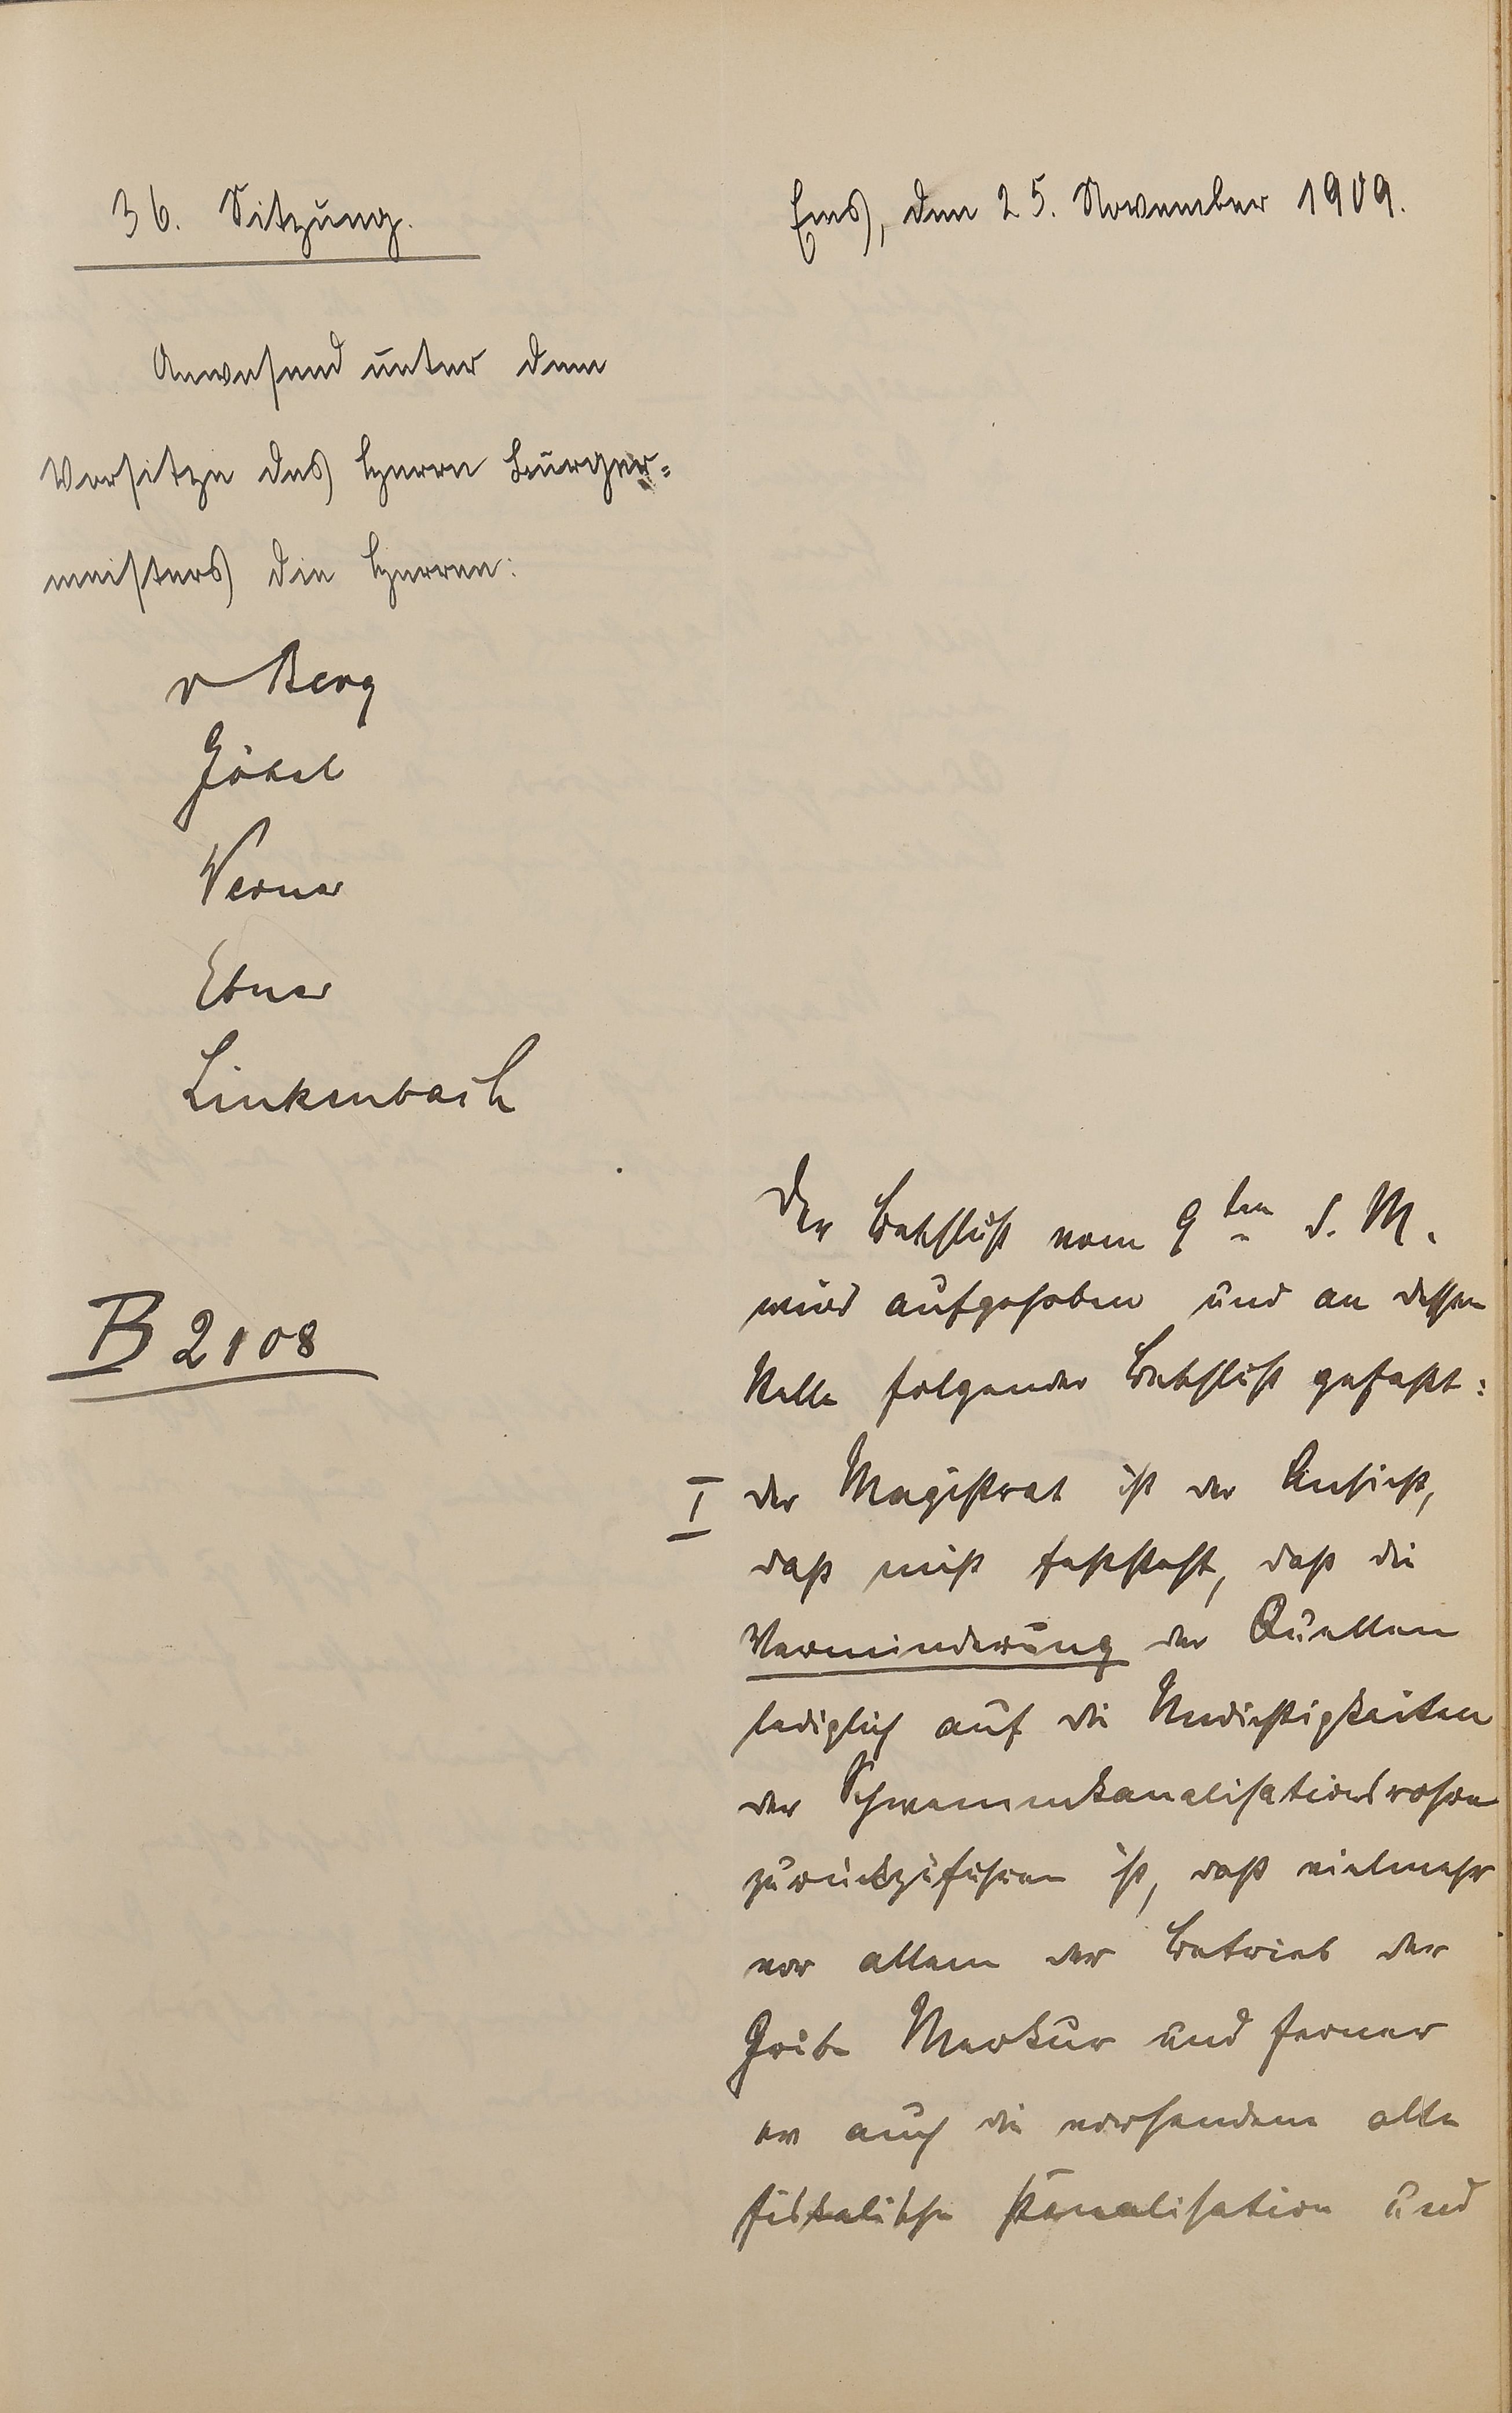 36. Sitzung.
Ems, den 25. November 1909.
Anwesend unter dem
Vorsitze des Herrn Bürger-
meisters die Herren:
v Berg
Göbel
Werner
Ebner
Linkenbach
B 2108
Der Beschluß vom 9ten d. M.
wird aufgehoben und an dessen
Stelle folgender Beschluß gefaßt:
I der Magistrat ist der Ansicht,
daß nicht feststeht, daß die
Verminderung der Quellen
lediglich auf die Undichtigkeiten
der Schwemmkanalisationsrohre
zurückzuführen ist, daß vielmehr
vor allem der Betrieb der
Grube Merkur und ferner
auch die vorhandene alte
fiskalische Kanalisation und